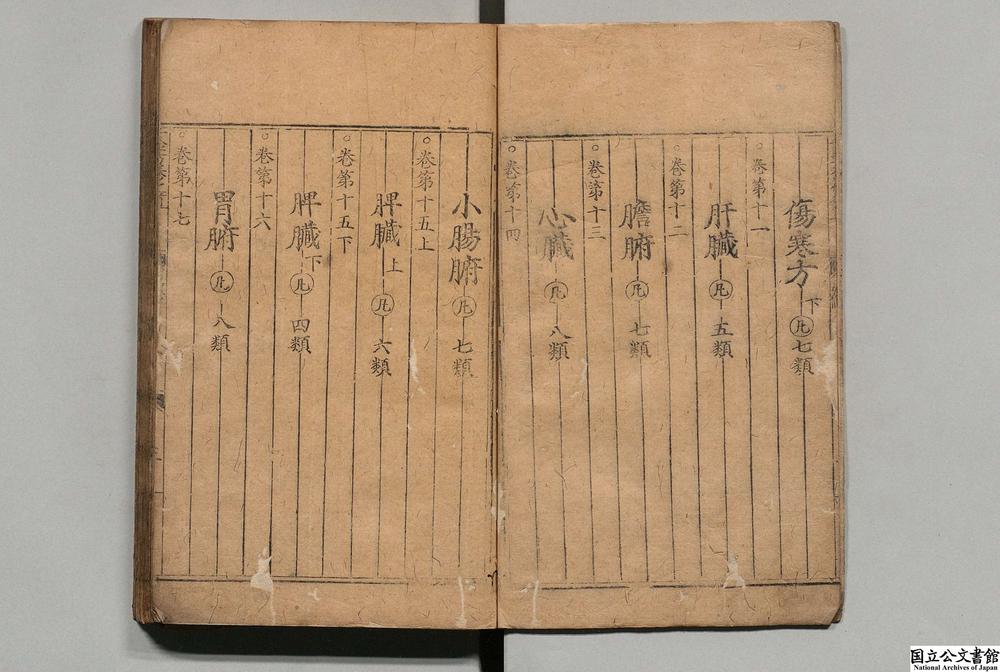 傷寒方下凡七類
○卷第十一
肝臟凡五類
○卷第十二
膽腑凡七類
○卷第十三
心臟凡八類
○卷第十四
小腸腑凡七類
○卷第十五上
脾臟上凡六類
○卷第十五下
脾臟下凡四類
○卷第十六
胃腑凡八類
○卷第十七
国立公文書館
National Archives of Japan